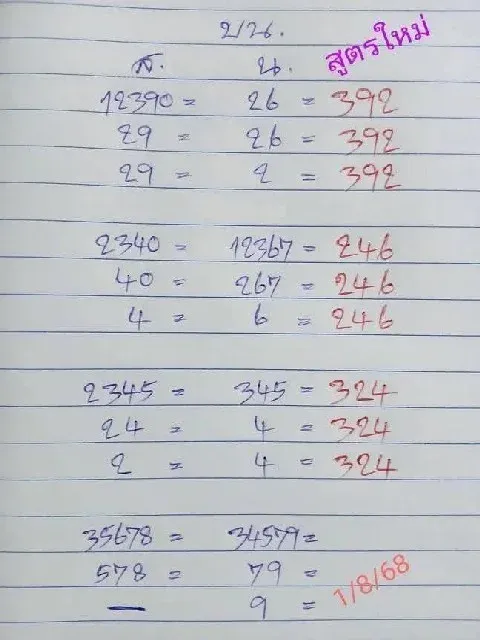 บ/น.
สูตรใหม่
ส. น.
12390 = 26 = 392
29 = 26 = 392
29 = 2 = 392
2340 = 12367 = 246
40 = 267 = 246
4 = 6 = 246
2345 = 345 = 324
24 = 4 = 324
2 = 4 = 324
35678 = 34579 =
578 = 79 =
— 9 = 1/8/68